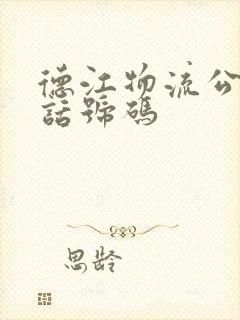 德江物流公
話號碼
思齡